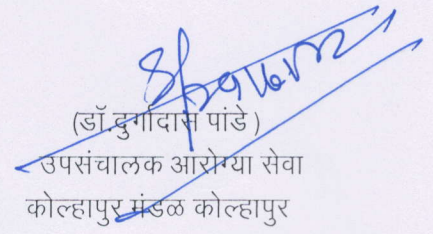 (डॉ.दुर्गादास पांडे )
उपसंचालक आरोग्या सेवा
कोल्हापुर मंडळ कोल्हापुर